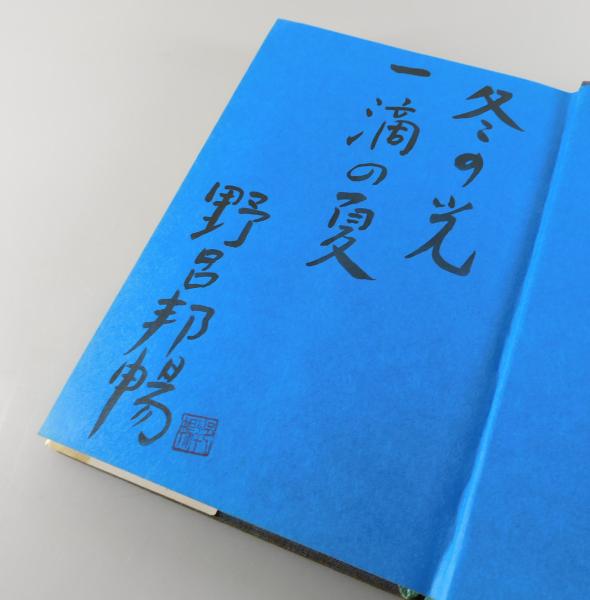 冬の光
一滴の夏
野呂邦暢